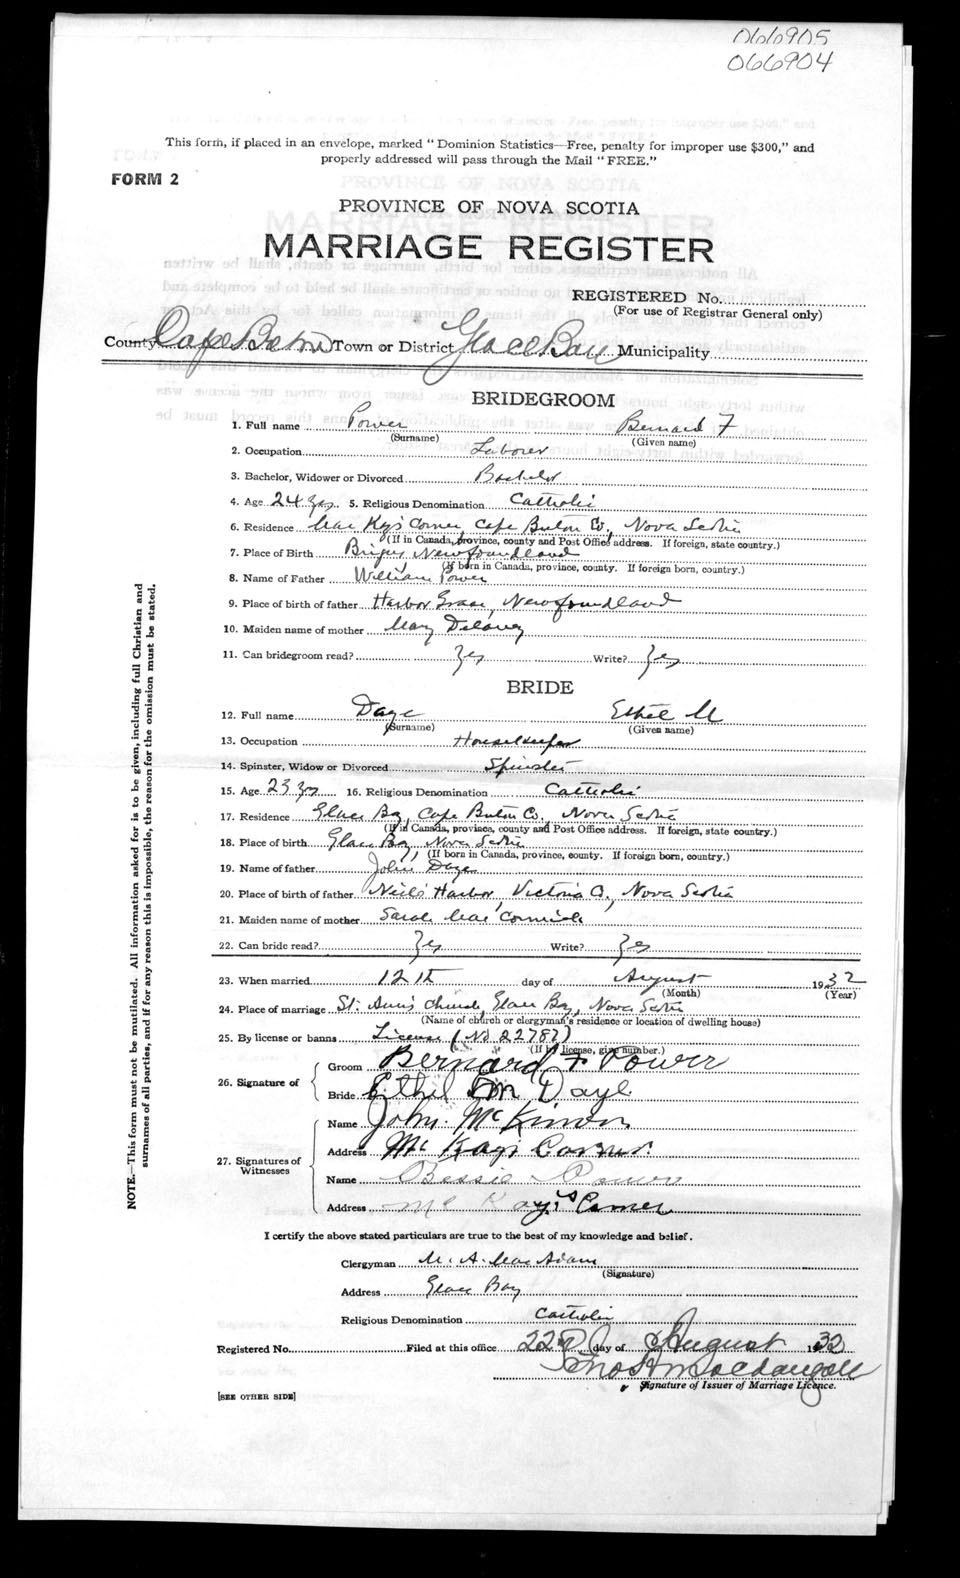 066905
066904
This form, if placed in an envelope, marked "Dominion Statistics—Free, penalty for improper use $300," and
properly addressed will pass through the Mail "FREE."
FORM 2
PROVINCE OF NOVA SCOTIA
MARRIAGE REGISTER
REGISTERED No.
(For use of Registrar General only)
County Cape Breton Town or District Glace Bay Municipality
BRIDEGROOM
1. Full name Power Bernard F
(Surname) (Given name)
2. Occupation Laborer
3. Bachelor, Widower or Divorced Bachelor
4. Age 24 yrs 5. Religious Denomination Catholic
6. Residence MacKay's Corner, Cape Breton Co, Nova Scotia
(If in Canada, province, county and Post Office address. If foreign, state country.)
7. Place of Birth Brigus Newfoundland
(If born in Canada, province, county. If foreign born, country.)
8. Name of Father William Power
9. Place of birth of father Harbor Grace, Newfoundland
10. Maiden name of mother Mary Delaney
11. Can bridegroom read? Yes Write? Yes
BRIDE
12. Full name Daye Ethel M
(Surname) (Given name)
13. Occupation Housekeeper
14. Spinster, Widow or Divorced Spinster
15. Age 23 yrs 16. Religious Denomination Catholic
17. Residence Glace Bay, Cape Breton Co., Nova Scotia
(If in Canada, province, county and Post Office address. If foreign, state country.)
18. Place of birth Glace Bay, Nova Scotia
(If born in Canada, province, county. If foreign born, country.)
19. Name of father John Daye
20. Place of birth of father Neil's Harbor, Victoria Co., Nova Scotia
21. Maiden name of mother Sarah MacCormick
22. Can bride read? Yes Write? Yes
23. When married 12th day of August 1932
(Month) (Year)
24. Place of marriage St. Ann's Church, Glace Bay, Nova Scotia
(Name of church or clergyman's residence or location of dwelling house)
25. By license or banns License (No 22787)
(If by license, give number.)
26. Signature of
Groom Bernard F Power
Bride Ethel M Daye
27. Signatures of Witnesses
Name John McKinnon
Address McKays Corner.
Name Bessie Power
Address McKay's Corner
I certify the above stated particulars are true to the best of my knowledge and belief.
Clergyman M. A. MacAdam
(Signature)
Address Glace Bay
Religious Denomination Catholic
Registered No. Filed at this office 22nd day of August 1932
Signature of Issuer of Marriage Licence.
[SEE OTHER SIDE]
NOTE.—This form must not be mutilated. All information asked for is to be given, including full Christian and
surnames of all parties, and if for any reason this is impossible, the reason for the omission must be stated.